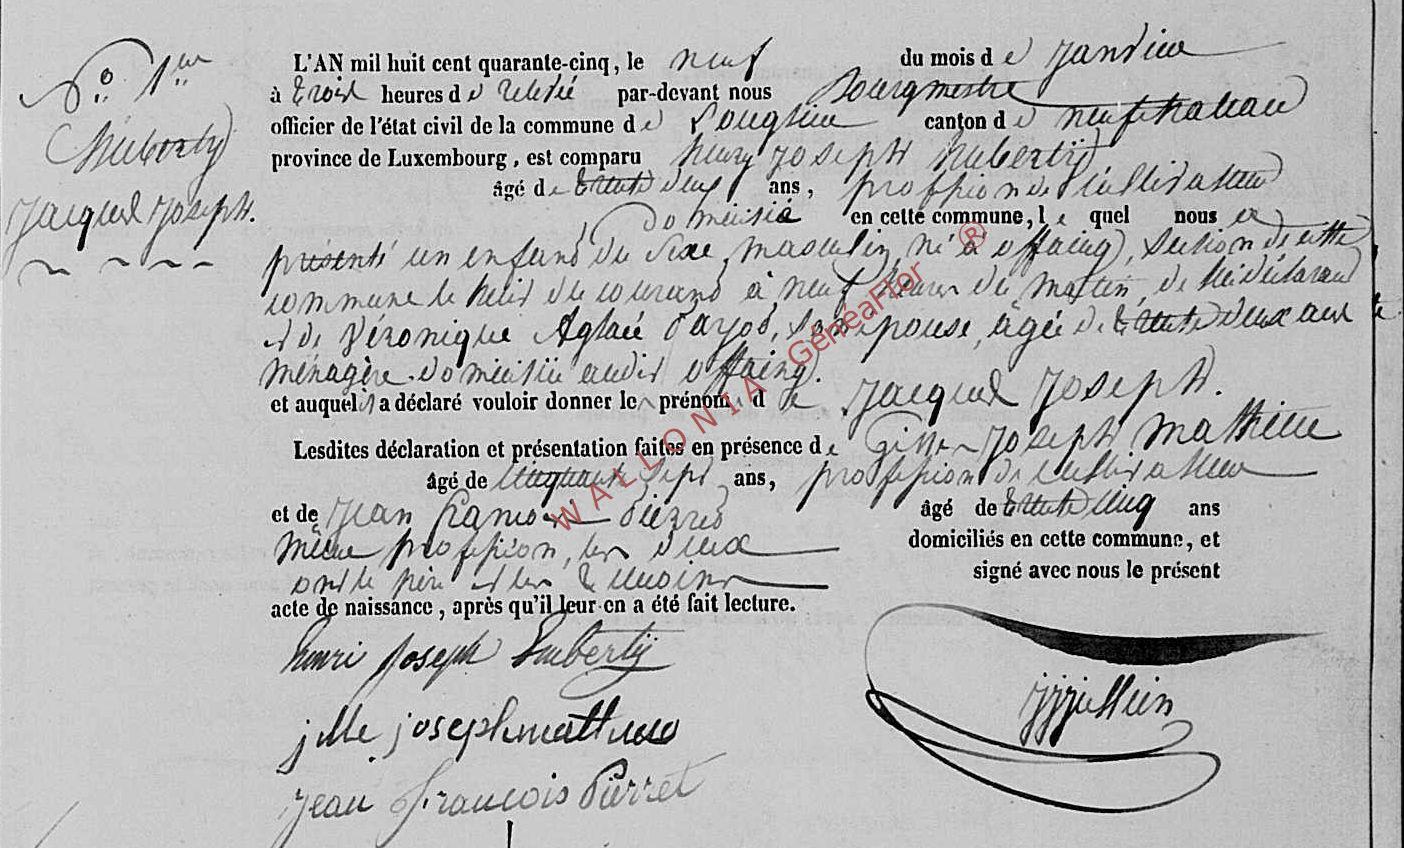 N° 1er
Huberty
Jacques Joseph.
L'AN mil huit cent quarante-cinq, le neuf du mois de Janvier
à trois heures de relevée par-devant nous Bourgmestre
officier de l'état civil de la commune de Longlier canton de neufchateau
province de Luxembourg, est comparu henry Joseph huberty
âgé de trente deux ans, profession de cultivateur
domicilié en cette commune, le quel nous a
présenté un enfant du sexe masculin né à offaing, section de cette
commune le huit du courant à neuf heures du matin, de lui déclarant
et de Véronique Aglaé, son épouse, âgée de trente deux ans
ménagère domiciliée audit offaing.
et auquel il a déclaré vouloir donner le prénom de Jacques Joseph.
Lesdites déclaration et présentation faites en présence de Gille Joseph Mathieu
âgé de cinquante sept ans, profession de cultivateur
et de Jean francois Pierret âgé de trente cinq ans
même profession, les deux domiciliés en cette commune, et
ont le père et les témoins signé avec nous le présent
acte de naissance, après qu'il leur en a été fait lecture.
henri Joseph huberty
jille joseph mathieu
Jean François Pierret
WALLONIA GénéaFlor ®